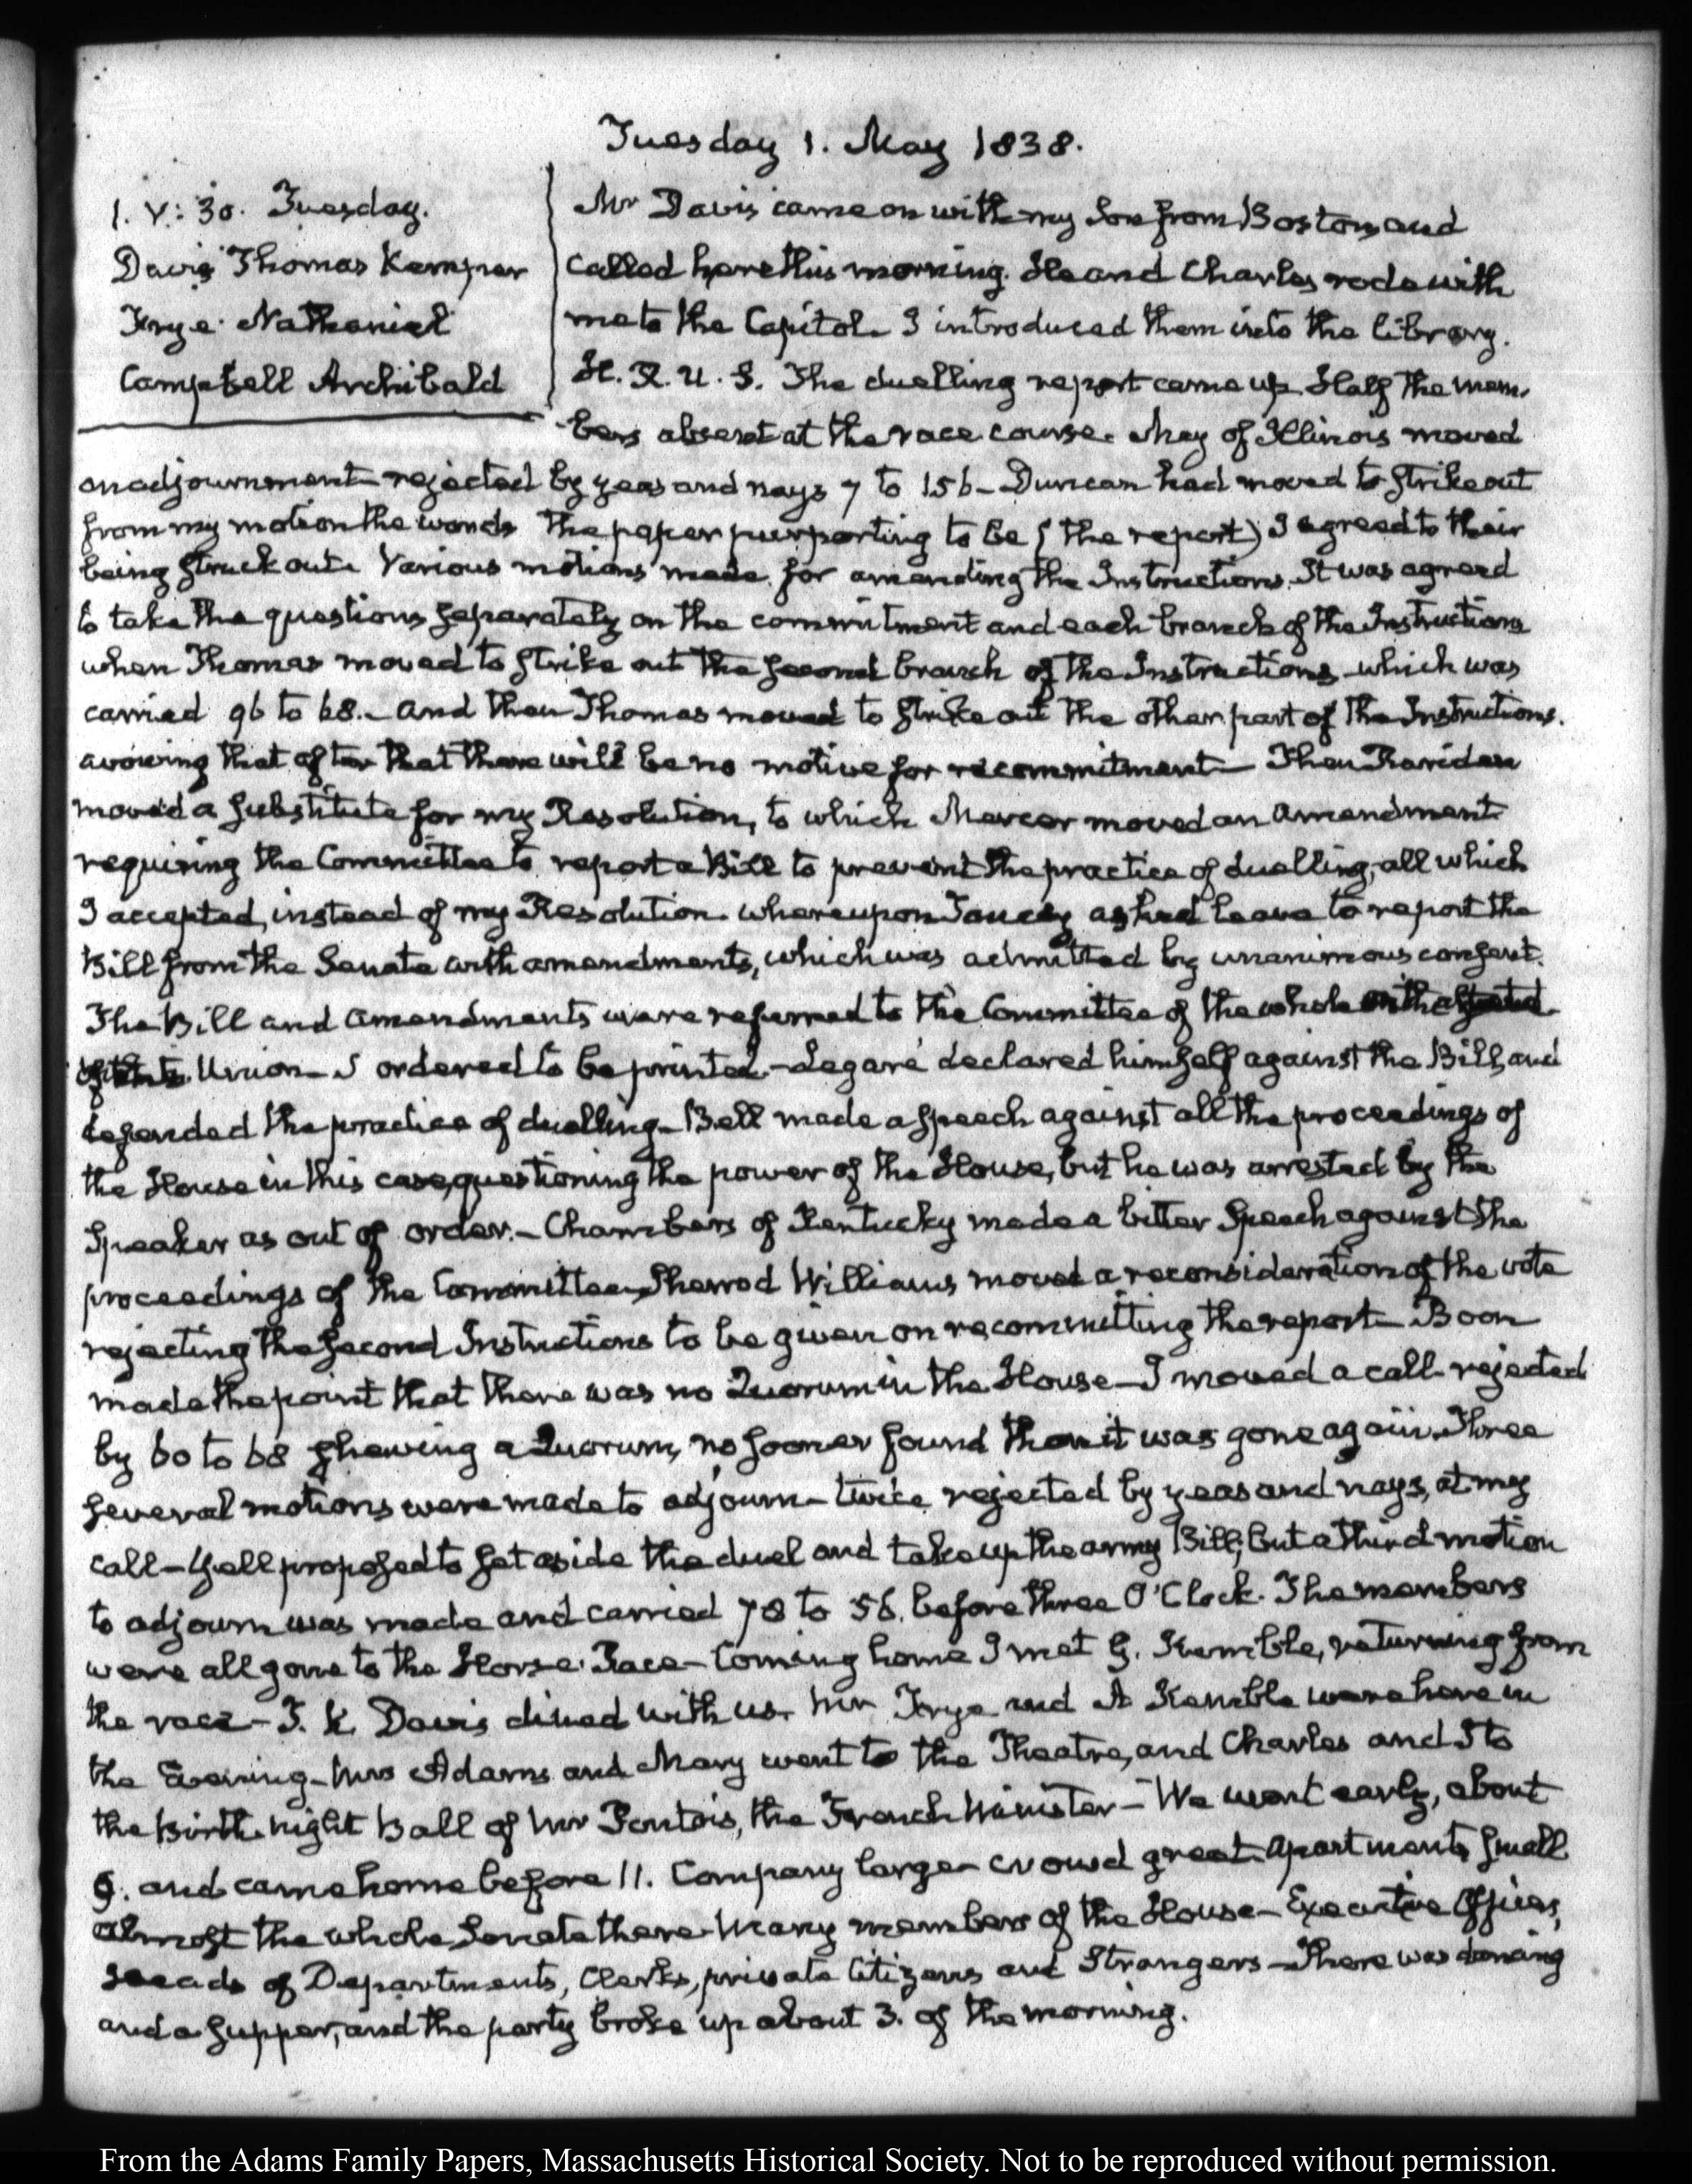 Tuesday 1. May 1838.
1. V: 30. Tuesday.
Davis Thomas Kemper
Frye Nathaniel
Campbell Archibald
Mr Davis came on with my Son from Boston and
called here this morning. He and Charles rode with
me to the Capitol. I introduced them into the library.
H. R. U. S. The duelling report came up. Half the mem-
bers absent at the race course. May of Illinois moved
an adjournment—rejected by yeas and nays 7 to 156—Duncan had moved to strike out
from my motion the words the paper purporting to be (the report) I agreed to their
being struck out. Various motions made for amending the Instructions. It was agreed
to take the questions separately on the commitment and each branch of the Instructions
when Thomas moved to strike out the second branch of the Instructions which was
carried 96 to 68.—and then Thomas moved to strike out the other part of the Instructions.
avowing that after that there will be no motive for recommitment—Then Randen
moved a substitute for my Resolution, to which Mercer moved an amendment
requiring the Committee to report a Bill to prevent the practice of duelling, all which
I accepted, instead of my Resolution. whereupon Toucey asked leave to report the
Bill from the Senate with amendments, which was admitted by unanimous consent.
The Bill and amendments were referred to the Committee of the whole on the state
of the Union—& ordered to be printed.—Legaré declared himself against the Bill, and
defended the practice of duelling—Bell made a speech against all the proceedings of
the House in this case, questioning the power of the House, but he was arrested by the
Speaker as out of order.—Chambers of Kentucky made a bitter Speech against the
proceedings of the Committee. Sherrod Williams moved a reconsideration of the vote
rejecting the second Instructions to be given on recommitting the report—Boon
made the point that there was no Quorum in the House—I moved a call—rejected
by 60 to 68 shewing a Quorum, no sooner found than it was gone again. Three
several motions were made to adjourn—twice rejected by yeas and nays, at my
call—Yell proposed to set aside the duel and take up the army Bill; but a third motion
to adjourn was made and carried 78 to 56. before three O'Clock. The members
were all gone to the Horse Race—Coming home I met G. Kemble, returning from
the race—T. K. Davis dined with us. Mr Frye and A Kemble were here in
the Evening—Mrs Adams and Mary went to the Theatre, and Charles and I to
the Birth-night Ball of Mr Pontois, the French Minister—We went early, about
9. and came home before 11. Company large—crowd great—apartments small
almost the whole Senate there—Many members of the House—Executive Officers,
Heads of Departments, Clerks, private Citizens and Strangers—There was dancing
and a supper, and the party broke up about 3. of the morning.
From the Adams Family Papers, Massachusetts Historical Society. Not to be reproduced without permission.